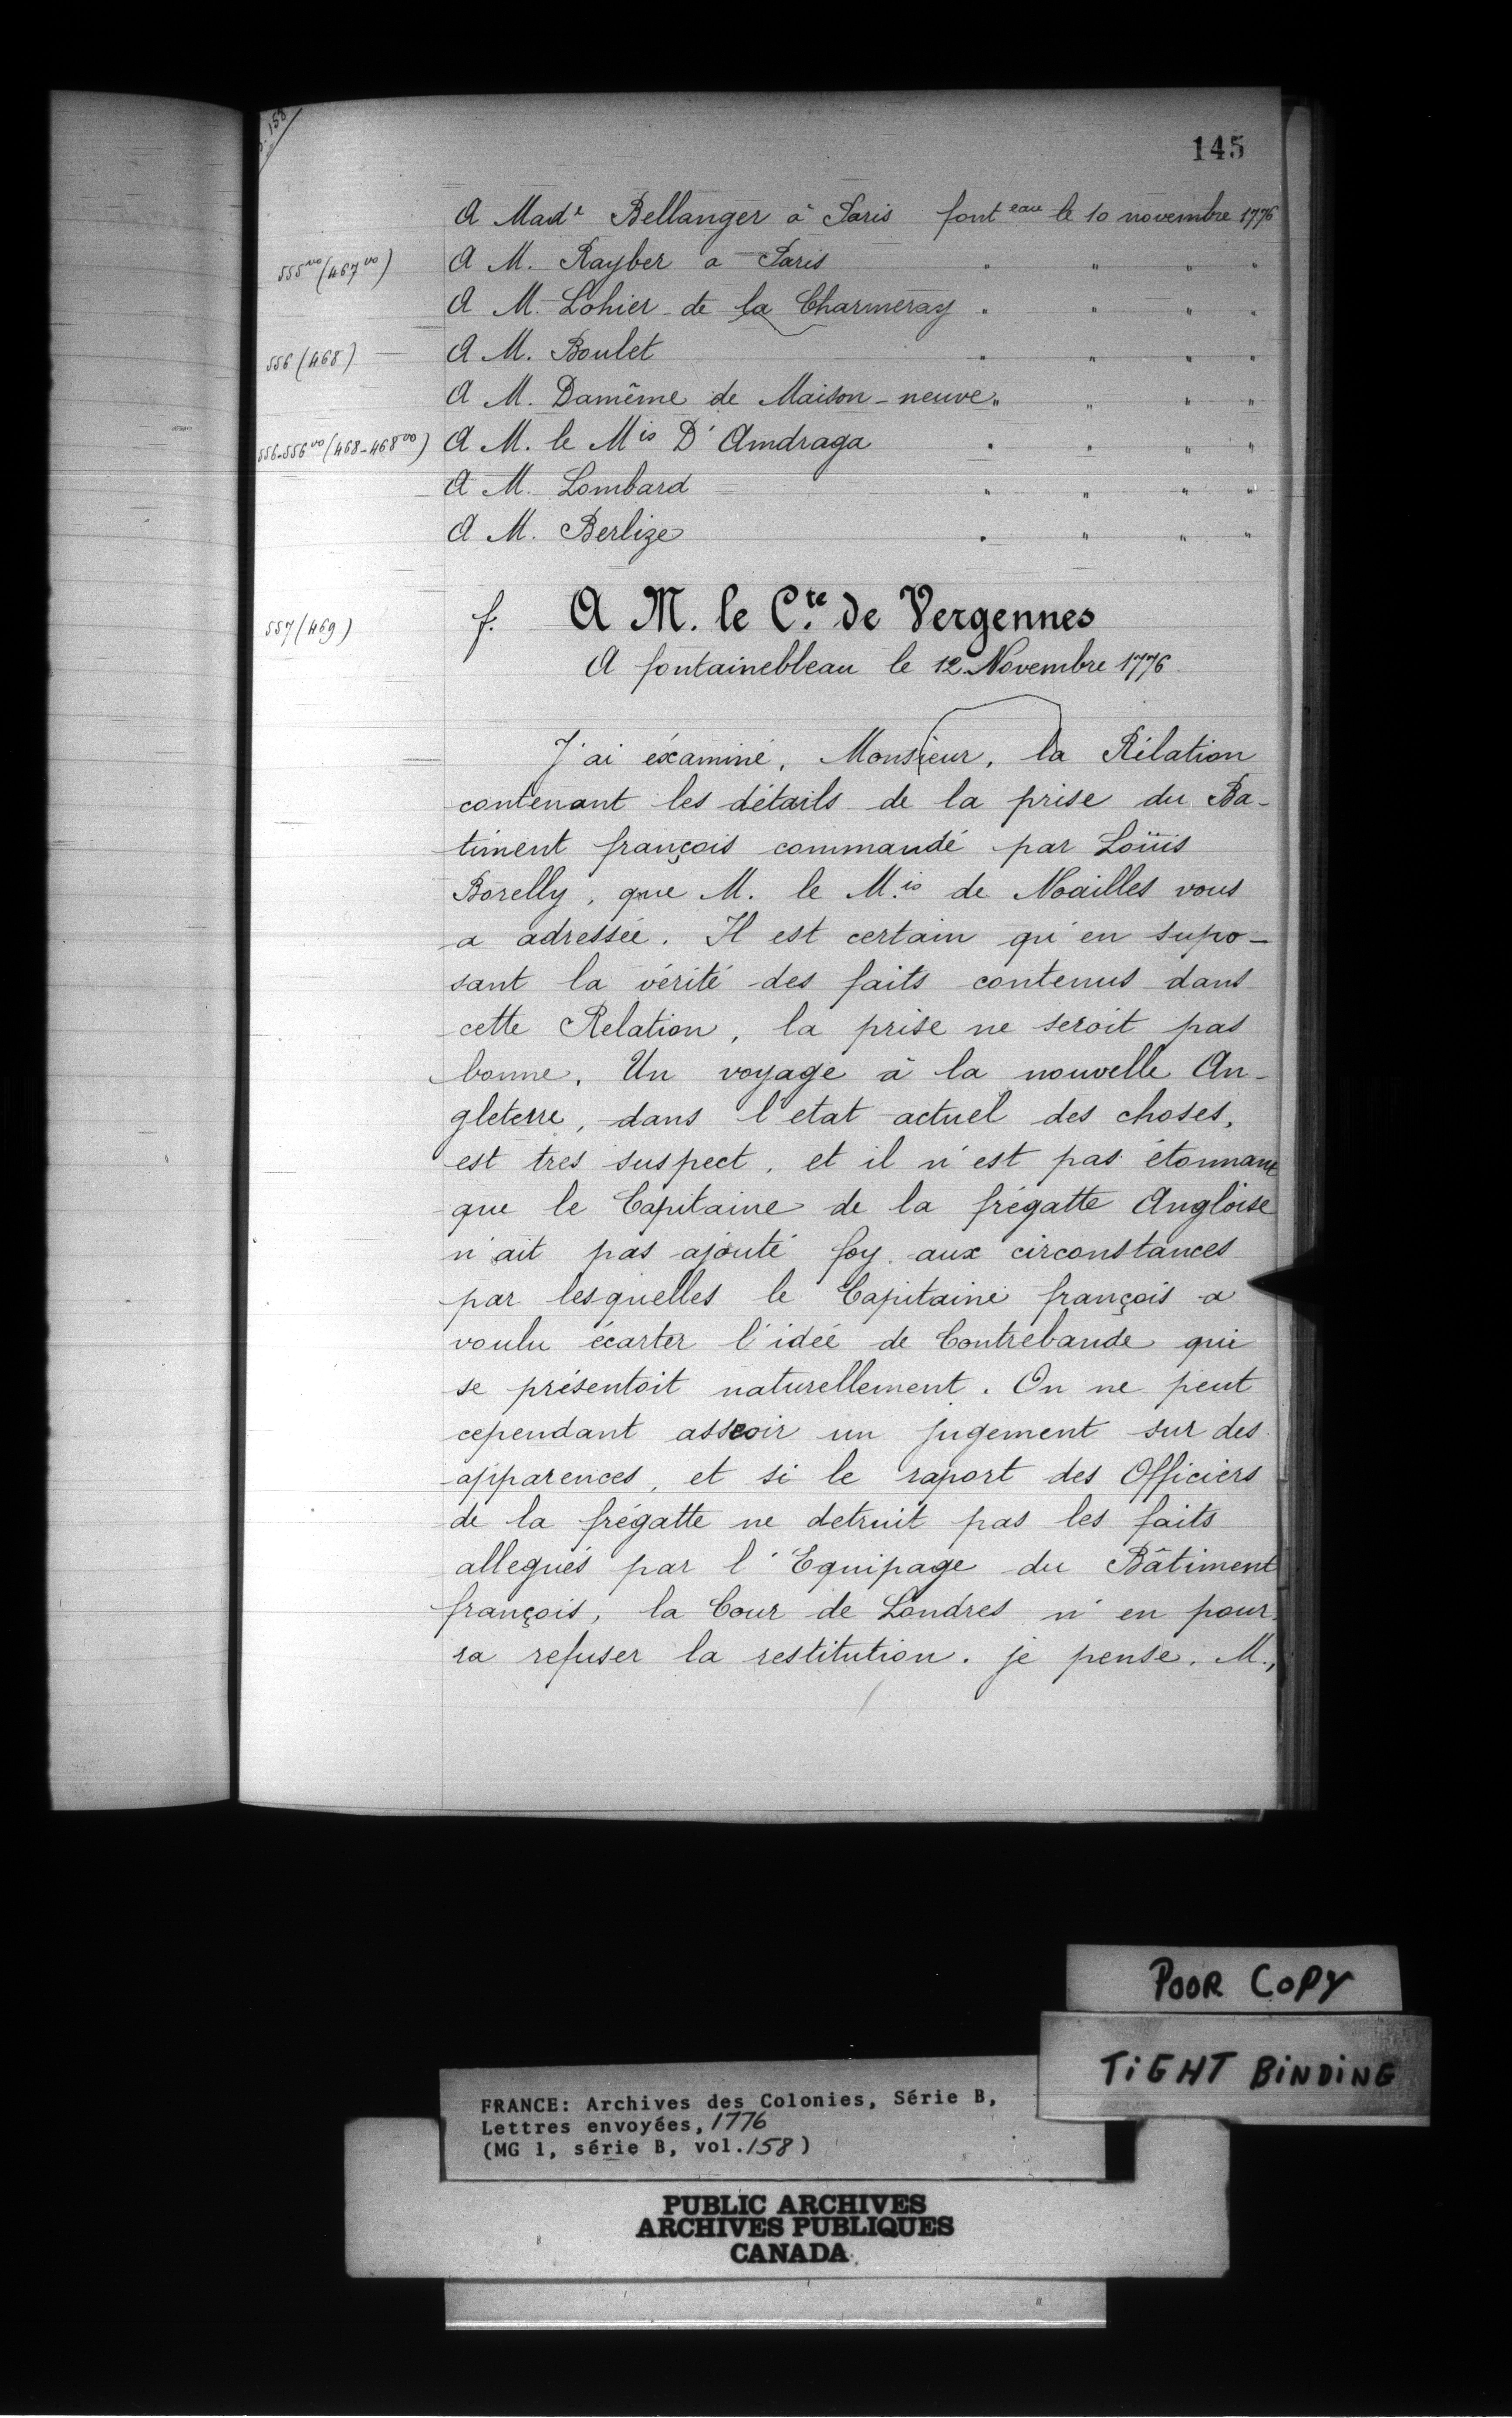 p. 158
145
A Madᵉ Bellanger à Paris fonteau le 10 novembre 1776
555vo (467vo) A M. Rayber a Paris " " " "
A M. Lohier de la Charmeray " " " "
556 (468) A M. Boulet " " " "
A M. Damême de Maison-neuve " " " "
556-556vo (468-468vo) A M. le Mis D'Amdraga " " " "
A M. Lombard " " " "
A M. Berlize " " " "
557 (469) f. A M. le Cte. de Vergennes
A fontainebleau le 12 Novembre 1776
J'ai éxaminé, Monsieur, la Rélation
contenant les détails de la prise du Ba-
timent françois commandé par Loüis
Borelly, que M. le M.is de Noailles vous
a adressée. Il est certain qu'en supo-
sant la vérité des faits contenus dans
cette Relation, la prise ne seroit pas
bonne. Un voyage à la nouvelle An-
gleterre, dans l'etat actuel des choses,
est tres suspect, et il n'est pas étonnant
que le Capitaine de la frégatte Angloise
n'ait pas ajouté foy aux circonstances
par lesquelles le Capitaine françois a
voulu écarter l'idée de Contrebande qui
se présentoit naturellement. On ne peut
cependant asseoir un jugement sur des
apparences, et si le raport des Officiers
de la frégatte ne detruit pas les faits
allegués par l'Equipage du Bâtiment
françois, la Cour de Londres n'en pour-
ra refuser la restitution. je pense, M.,
POOR COPY
TIGHT BINDING
FRANCE: Archives des Colonies, Série B,
Lettres envoyées, 1776
(MG 1, série B, vol. 158)
PUBLIC ARCHIVES
ARCHIVES PUBLIQUES
CANADA